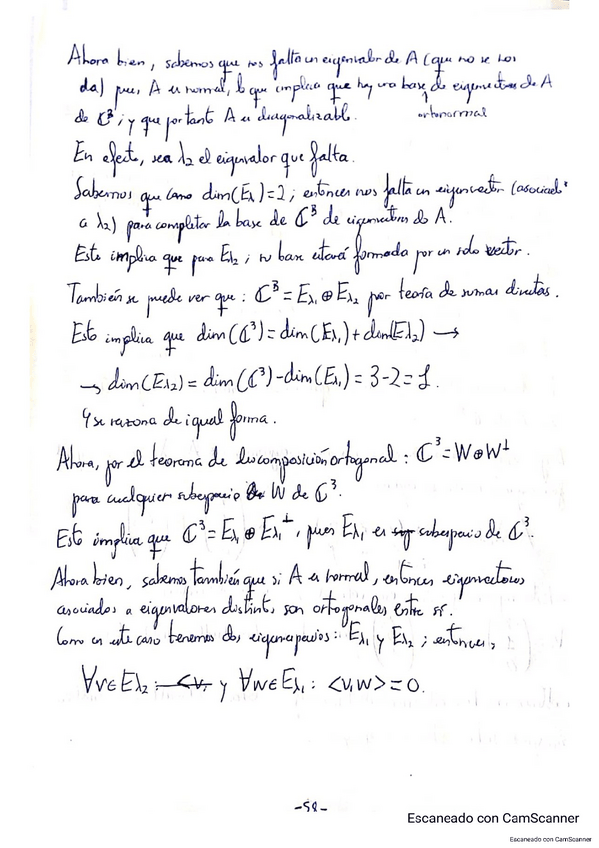 Ahora bien, sabemos que nos falta un eigenvalor de A (que no se nos
da) pues A es normal, lo que implica que hay una base de eigenvectores de A
ortonormal
de ℂ³; y que por tanto A es diagonalizable.
En efecto, sea λ2 el eigenvalor que falta.
Sabemos que como dim(Eλ)=2; entonces nos falta un eigenvector (asociado
a λ2) para completar la base de ℂ³ de eigenvectores de A.
Esto implica que para Eλ2; su base estará formada por un solo vector.
También se puede ver que: ℂ³ = Eλ1 ⊕ Eλ2 por teoría de sumas directas.
Esto implica que dim(ℂ³) = dim(Eλ1) + dim(Eλ2) →
→ dim(Eλ2) = dim(ℂ³) - dim(Eλ1) = 3-2 = 1.
Y se razona de igual forma.
Ahora, por el teorema de descomposición ortogonal: ℂ³ = W⊕W⊥
para cualquier subespacio W de ℂ³.
Esto implica que ℂ³ = Eλ1 ⊕ Eλ1⊥, pues Eλ1 es subespacio de ℂ³.
Ahora bien, sabemos también que si A es normal, entonces eigenvectores
asociados a eigenvalores distint, son ortogonales entre sí.
Como en este caso tenemos dos eigenespacios: Eλ1 y Eλ2; entonces,
∀v∈Eλ2 : <v, y ∀w∈Eλ1 : <v,w> = 0.
-58-
Escaneado con CamScanner
Escaneado con CamScanner